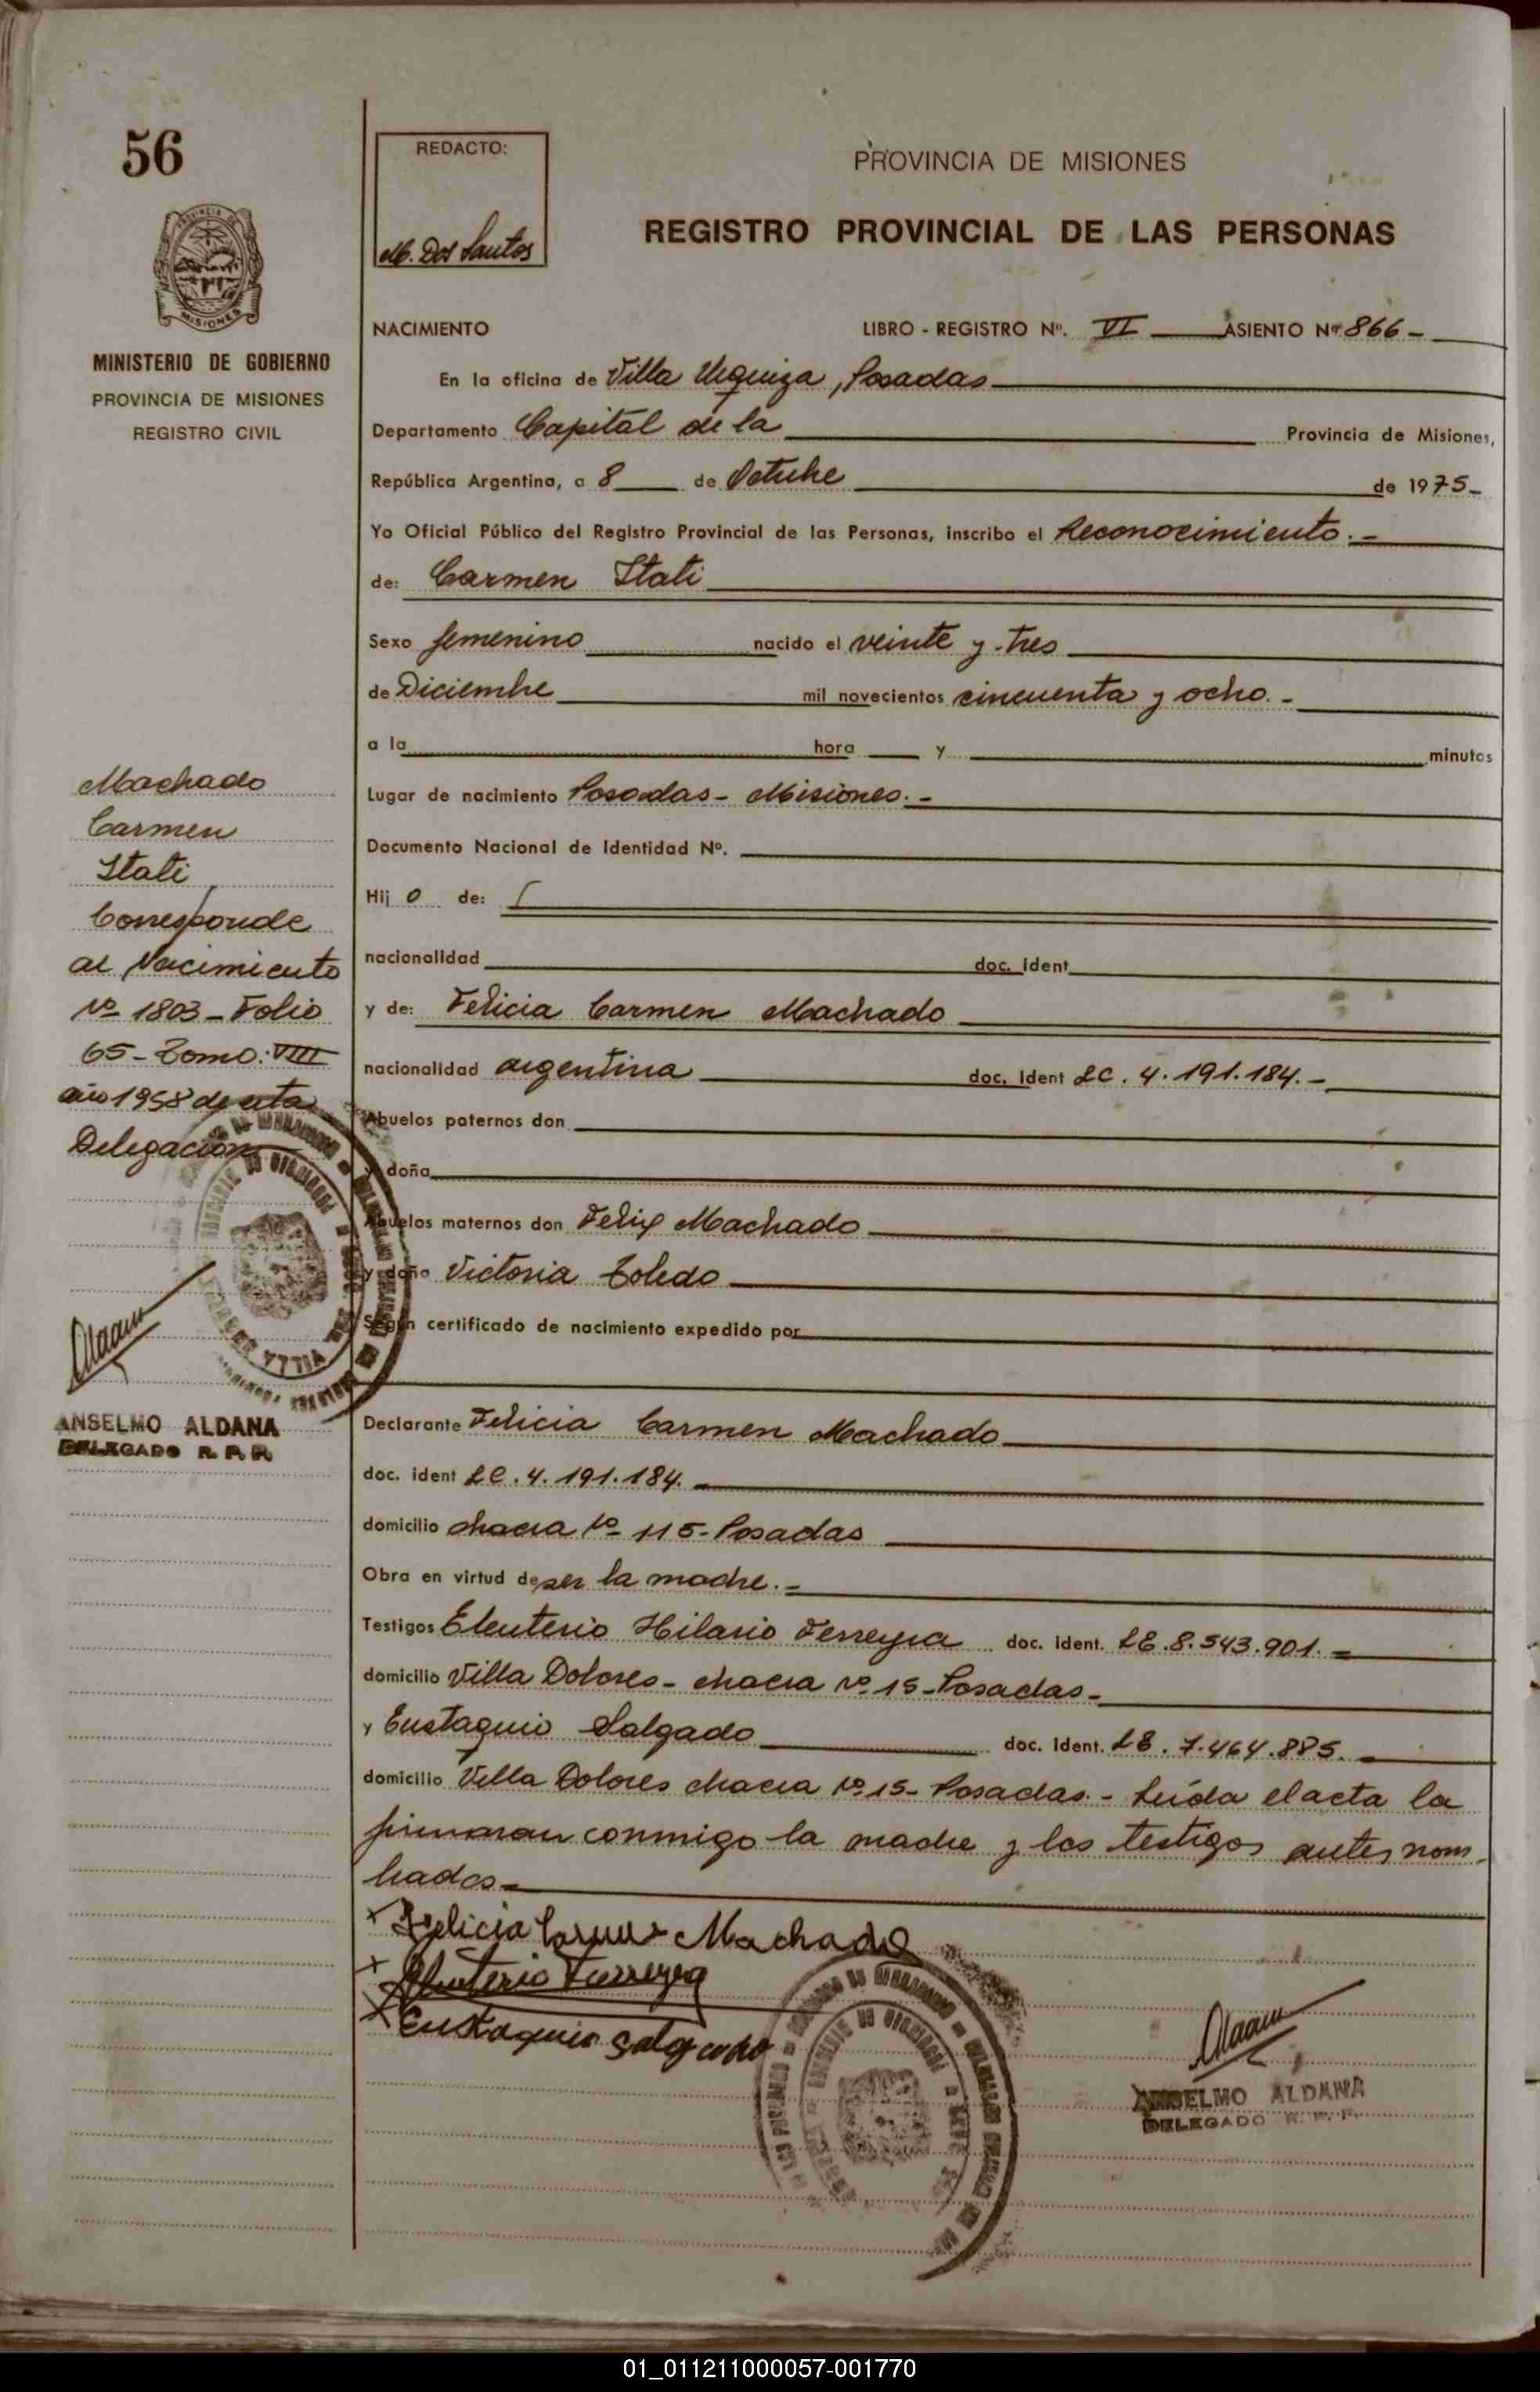 56
REDACTO:
M. Dos Santos
PROVINCIA DE MISIONES
REGISTRO PROVINCIAL DE LAS PERSONAS
PROVINCIA DE
MISIONES
MINISTERIO DE GOBIERNO
PROVINCIA DE MISIONES
REGISTRO CIVIL
NACIMIENTO LIBRO - REGISTRO Nº. VI ASIENTO Nº 866-
En la oficina de Villa Urquiza, Posadas
Departamento Capital de la Provincia de Misiones,
República Argentina, a 8 de Octubre de 1975-
Yo Oficial Público del Registro Provincial de las Personas, inscribo el Reconocimiento.-
de: Carmen Itati
Sexo femenino nacido el veinte y tres
de Diciembre mil novecientos cincuenta y ocho.-
a la hora y minutos
Lugar de nacimiento Posadas - Misiones.-
Documento Nacional de Identidad Nº.
Hij o de:
nacionalidad doc. ident
y de: Felicia Carmen Machado
nacionalidad argentina doc. Ident LC. 4.191.184.-
Abuelos paternos don
y doña
Abuelos maternos don Felix Machado
y doña Victoria Toledo
Según certificado de nacimiento expedido por
Declarante Felicia Carmen Machado
doc. ident LC. 4.191.184.
domicilio chacra Nº 115-Posadas
Obra en virtud de ser la madre.=
Testigos Eleuterio Hilario Ferreyra doc. ident. LE.8.543.901.=
domicilio Villa Dolores - chacra Nº 15-Posadas-
y Eustaquio Salgado doc. Ident. LE. 7.464.885.
domicilio Villa Dolores chacra Nº 15- Posadas.- Leída el acta la
firmaran conmigo la madre y los testigos antes nom-
brados=
x Felicia Carmen Machado
x Eleuterio Ferreyra
x Eustaquio Salgado
ANSELMO ALDANA
DELEGADO R. P. P.
Machado
Carmen
Itati
Corresponde
al Nacimiento
Nº 1803 - Folio
65 - Tomo: VIII
año 1958 de esta
Delegación
ANSELMO ALDANA
DELEGADO R. P. P.
01_011211000057-001770